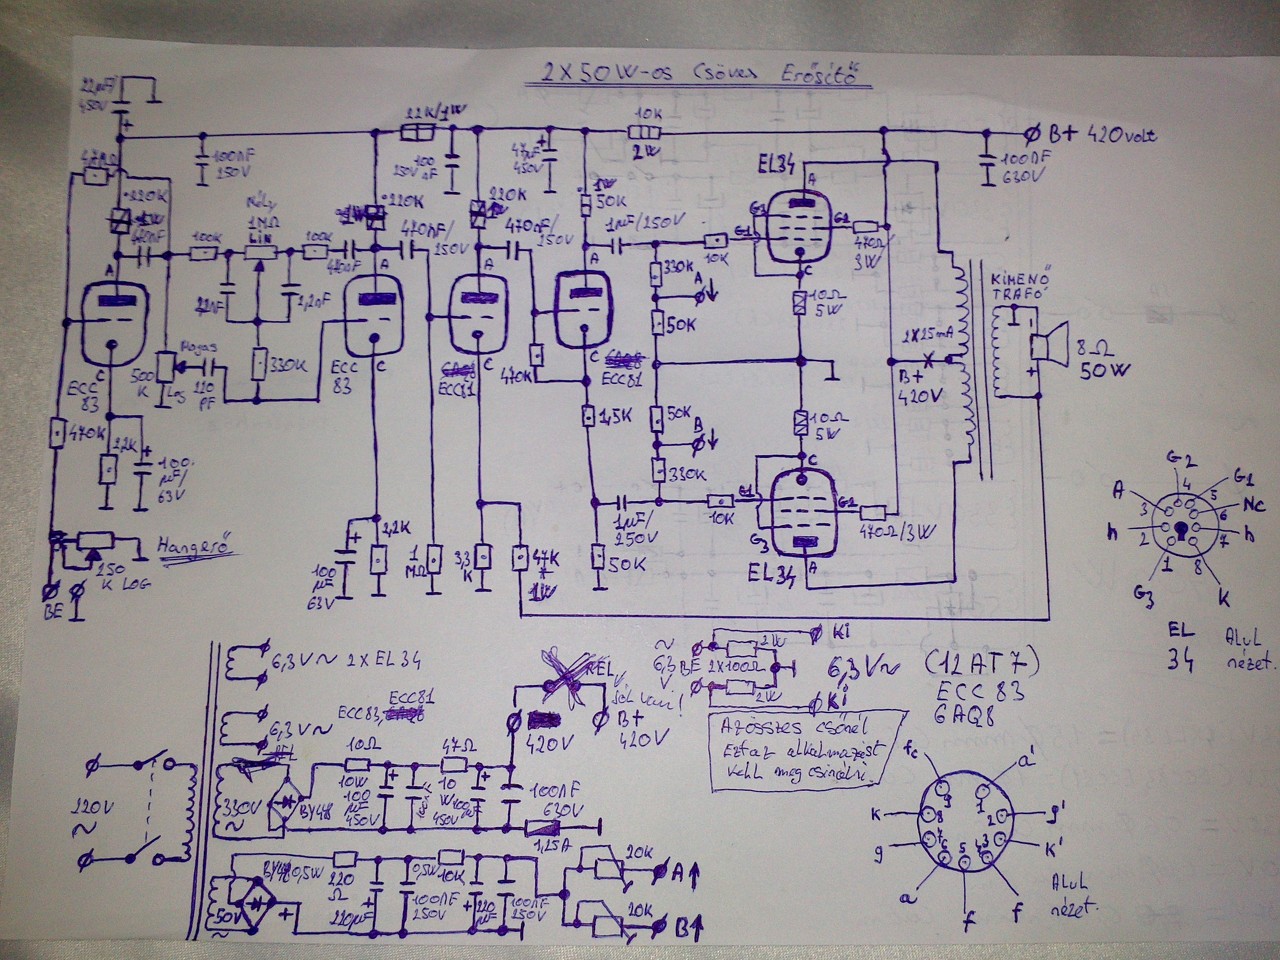 2X50W-os Csöves Erősítő
22µF/
450V
22K/1W
10K
2W
B+ 420volt
100nF
250V
100
nF
250V
47µF
450V
EL34
A
100nF
630V
220K
Mély
1MΩ
LiN
220K
220K
1W
50K
1µF/250V
470nF/
250V
470nF/
250V
G3
G1
G2
470Ω
3W
10K
100K
100K
A
A
A
A
330K
A
50K
C
10Ω
5W
KiMENŐ
TRAFÓ
2X25mA
B+
420V
8Ω
50W
2,2nF
Magas
500
K
Log
330K
ECC
83
ECC
83
C
C
C
C
ECC81
ECC81
470K
1,5K
50K
B
330K
10Ω
5W
C
470K
2,2K
100
µF/
63V
1µF/
250V
10K
G1
G2
G3
470Ω/3W
EL34
A
Hangerő
250
K LOG
BE
100
µF
63V
2,2K
1
MΩ
3,3
K
47K
1W
50K
G2
G1
A
Nc
4
5
3
6
h
h
2
7
1
8
G3
K
EL
34
Alul
nézet.
6,3V~ 2XEL34
6,3V~
ECC83,
ECC81
220V
~
330V
~
BY448
10Ω
10W
100
µF
450V
47Ω
10
W
100µF
450V
420V
B+
420V
100nF
630V
1,25A
~
6,3
V
BE
2X100Ω
2W
2W
Ki
Ki
6,3V~
Az összes csőnél
Ezt az alkalmazást
kell megcsinálni.
(12AT7)
ECC83
6AQ8
fc
a'
9
1
k
8
2
g'
g
7
3
k'
6
5
4
a
f
f
Alul
nézet.
50V
~
220
Ω
220µF
0,5W
10K
100nF
250V
220
µF
100nF
250V
20K
A
20K
B